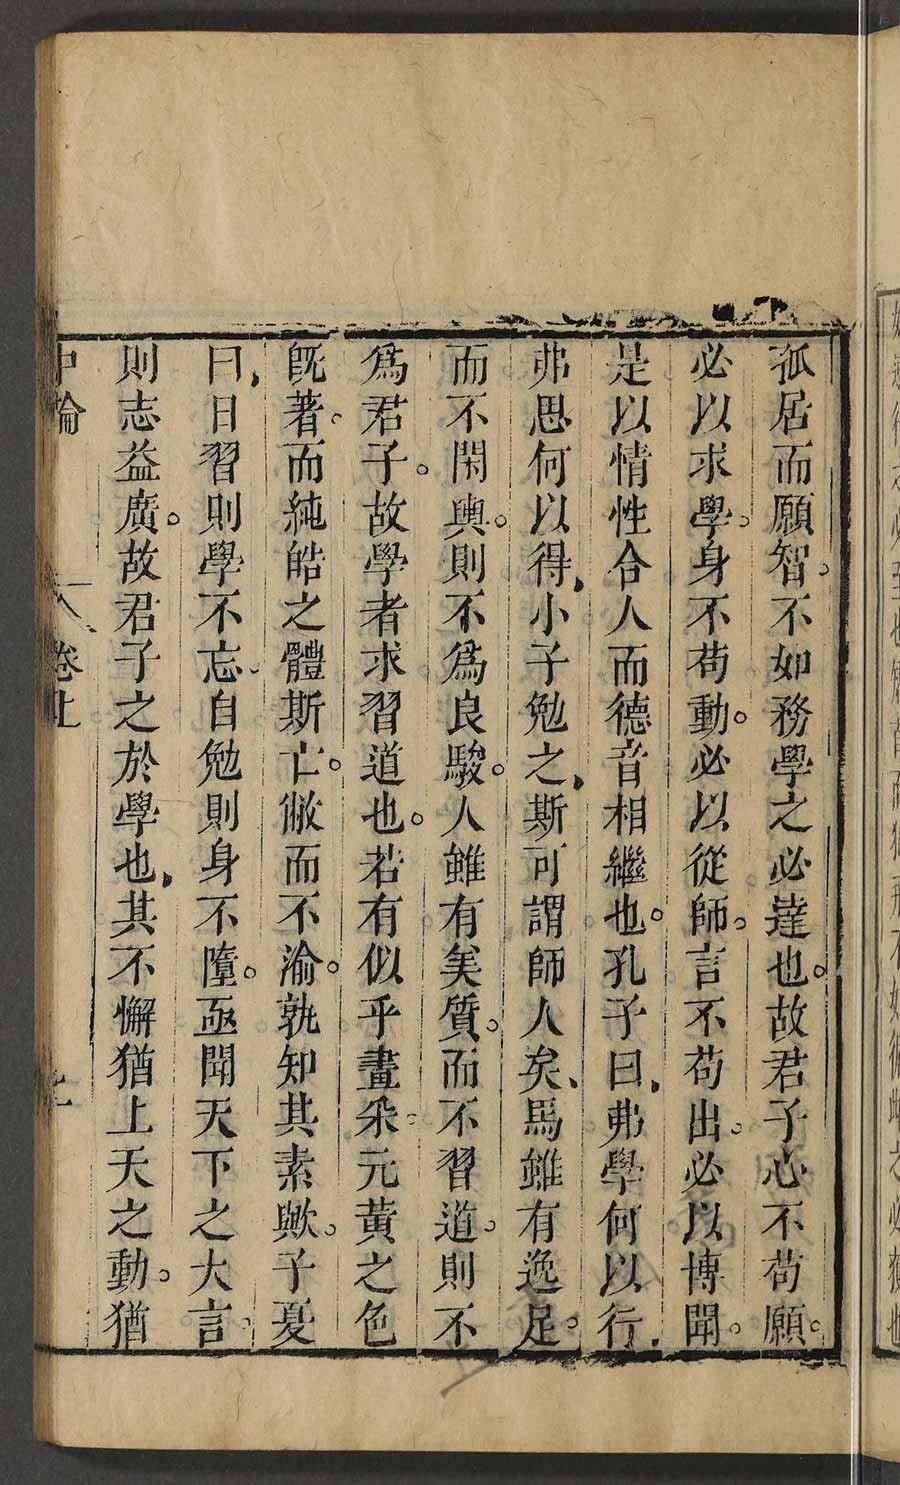 孤居而願智。不如務學之必達也。故君子心不苟願。
必以求學。身不苟動。必以從師。言不苟出。必以博聞。
是以情性合人而德音相繼也。孔子曰。弗學何以行。
弗思何以得。小子勉之。斯可謂師人矣、馬雖有逸足。
而不閑輿。則不爲良駿。人雖有美質。而不習道。則不
爲君子。故學者求習道也。若有似乎畫采。元黃之色
旣著。而純皓之體斯亡。敝而不渝。孰知其素歟。子夏
曰。日習則學不忘。自勉則身不墮。亟聞天下之大言。
則志益廣。故君子之於學也。其不懈猶上天之動。猶
中論
卷上